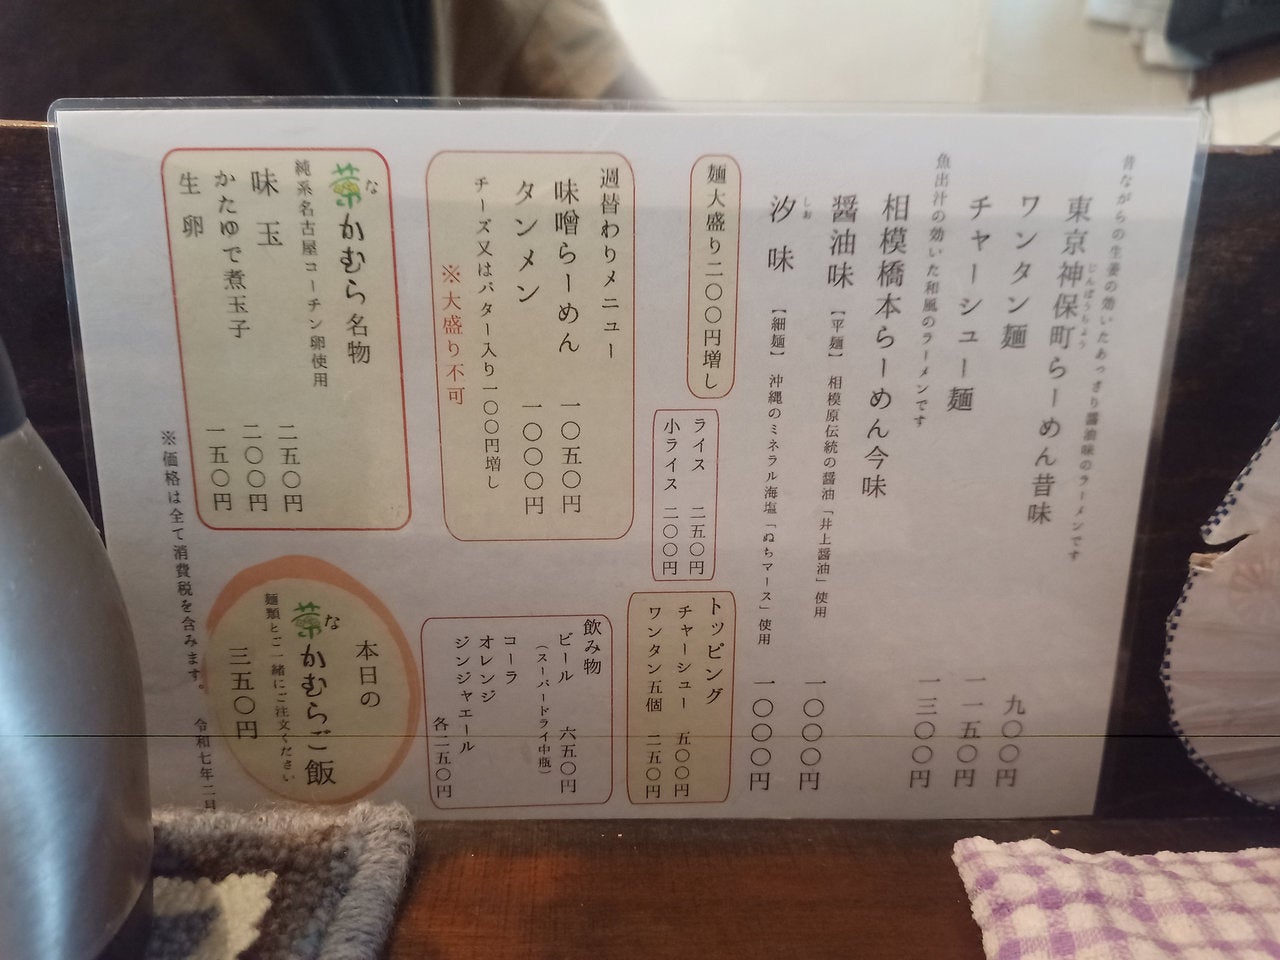 昔ながらの生姜の効いたあっさり醤油味のラーメンです
東京神保町らーめん昔味 九〇〇円
じんぼうちょう
ワンタン麺 一一五〇円
チャーシュー麺 一三〇〇円
魚出汁の効いた和風のラーメンです
相模橋本らーめん今味
醤油味 【平麺】 相模原伝統の醤油「井上醤油」使用 一〇〇〇円
汐味 【細麺】 沖縄のミネラル海塩「ぬちマース」使用 一〇〇〇円
しお
麺大盛り二〇〇円増し
ライス 二五〇円
小ライス 二〇〇円
トッピング
チャーシュー 五〇〇円
ワンタン五個 二五〇円
週替わりメニュー
味噌らーめん 一〇五〇円
タンメン 一〇〇〇円
チーズ又はバター入り一〇〇円増し
※大盛り不可
飲み物
ビール 六五〇円
(スーパードライ中瓶)
コーラ
オレンジ
ジンジャエール
各二五〇円
菜かむら名物
な
純系名古屋コーチン卵使用
味玉 二五〇円
かたゆで煮玉子 二〇〇円
生卵 一五〇円
本日の
菜かむらご飯
な
麺類とご一緒にご注文ください
三五〇円
※価格は全て消費税を含みます。 令和七年二月